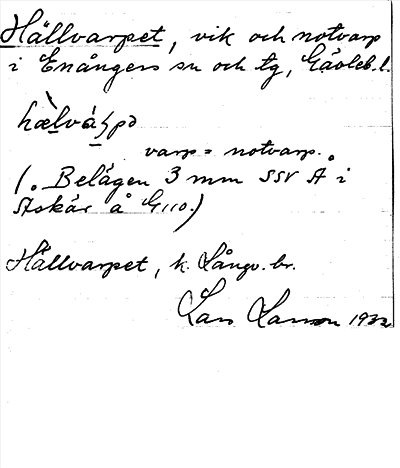 Hällvarpet, vik och notvarp
i Enångers sn och tg, Gävleb. l.
hæ̀lvaʹpə
varp = notvarp.
(. Belägen 3 mm SSV A i
Stokär å G110.)
Hällvarpet, k. Långv. br.
Lars Larsson 1932